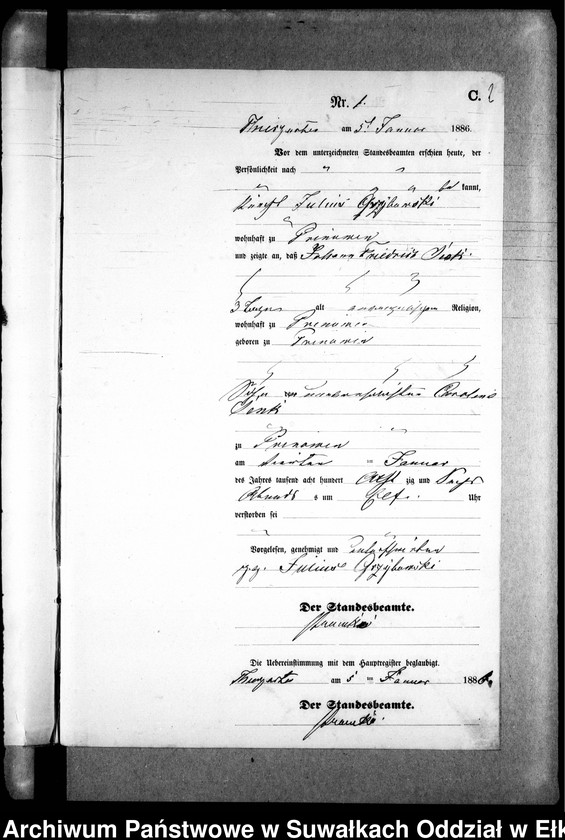 C. 2
Nr. 1.
Thiergarten am 5t Januar 1886.
Vor dem unterzeichneten Standesbeamten erschien heute, der
Persönlichkeit nach
kannt,
Julius Grzybowski
wohnhaft zu Prinowen
und zeigte an, daß Johann Friedrich
3 alt evangelischer Religion,
wohnhaft zu Prinowen
geboren zu Prinowen
Sohn der unverehelichten Caroline
zu Prinowen
am vierten Januar
des Jahres tausend acht hundert acht zig und sechs
Abends s um Elf Uhr
verstorben sei
Vorgelesen, genehmigt und unterschrieben
gez. Julius Grzybowski
Der Standesbeamte.
Die Uebereinstimmung mit dem Hauptregister beglaubigt.
Thiergarten am 5 ten Januar 1886.
Der Standesbeamte.
Archiwum Państwowe w Suwałkach Oddział w Ełk